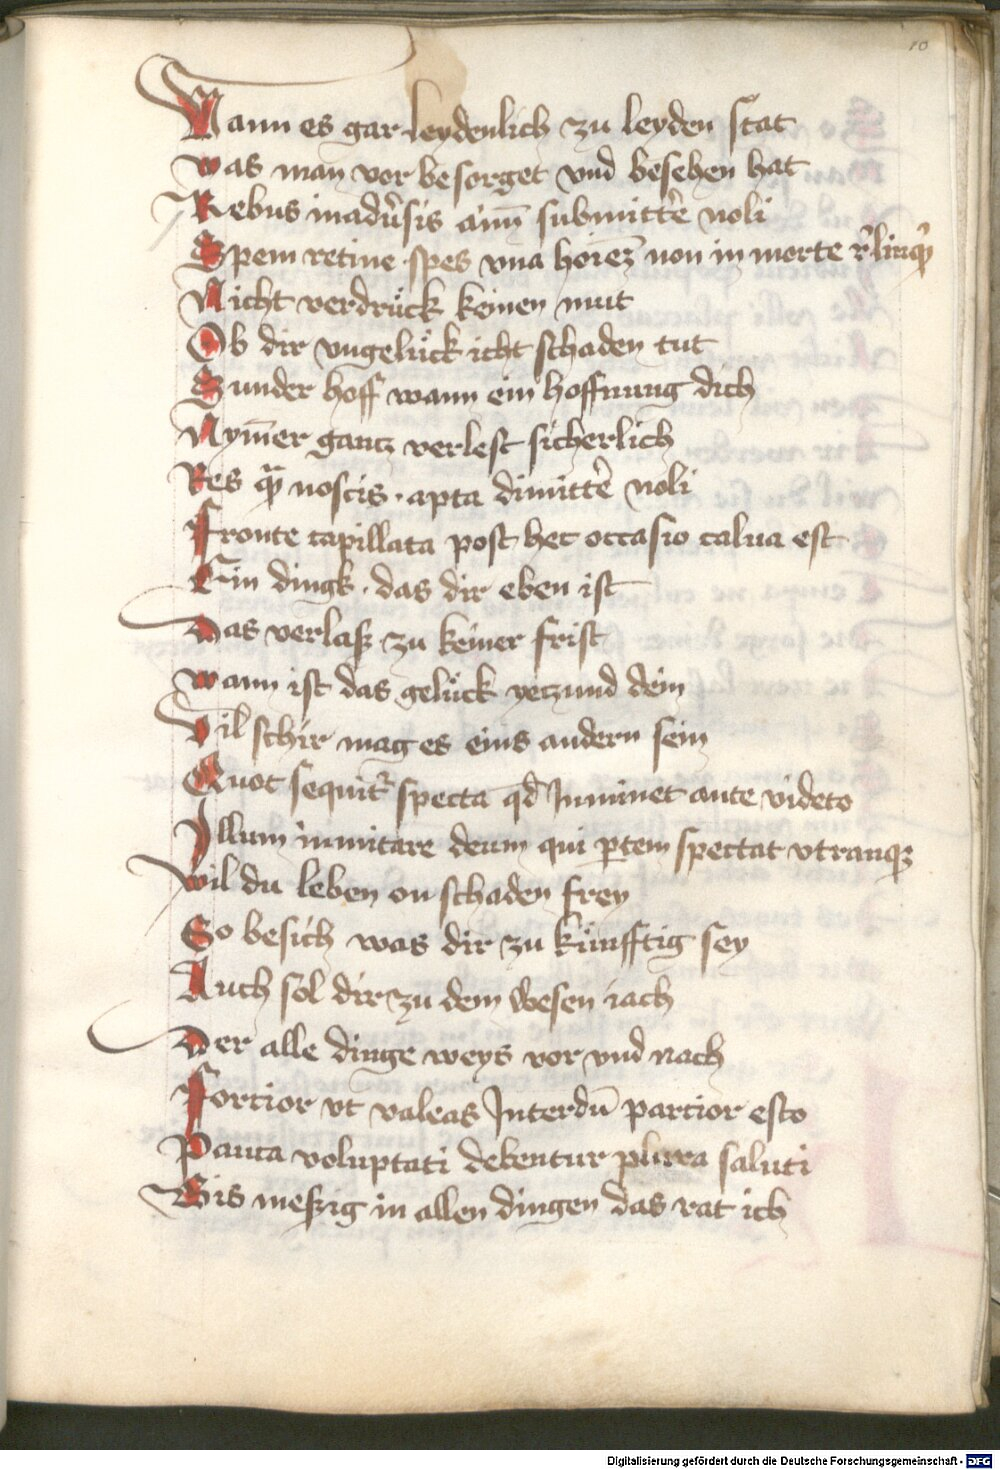 10
Wann es gar leydenlich zu leyden stat
was man vor besorget vnd besehen hat
Rebus in adu̓sis aīm̄ submitte̓ noli
Spem retine spes vna hoiez̄ non in morte r̓linq̓
Nicht verdruͤck keinen mut
Ob dir vngeluͤck icht schaden tut
Sunder hoff wann ein hoffnung dich
Nym̄er gantz verlest sicherlich
Res qᷓ noscis · apta dimitte̓ noli
Fronte capillata post hec occasio calua est
Ein dingk · das dir eben ist
Das verlaß zu keiner frist
wann ist das geluͤck yetzund dein
Vil schir mag es eins andern sein
Quot sequit᷑ specta qd̓ Inminet ante videto
Illum inmitare deum qui ꝑtem spectat vtranqꝫ
wil du leben on schaden frey
So besich was dir zu kuͤnfftig sey
Auch sol dir zu dem wesen iach
Der alle dinge weys vor vnd nach
Fortior vt valeas Interdū parcior esto
Pauca voluptati debentur plura saluti
Bis meßig in allen dingen das rat ich
Digitalisierung gefördert durch die Deutsche Forschungsgemeinschaft - DFG